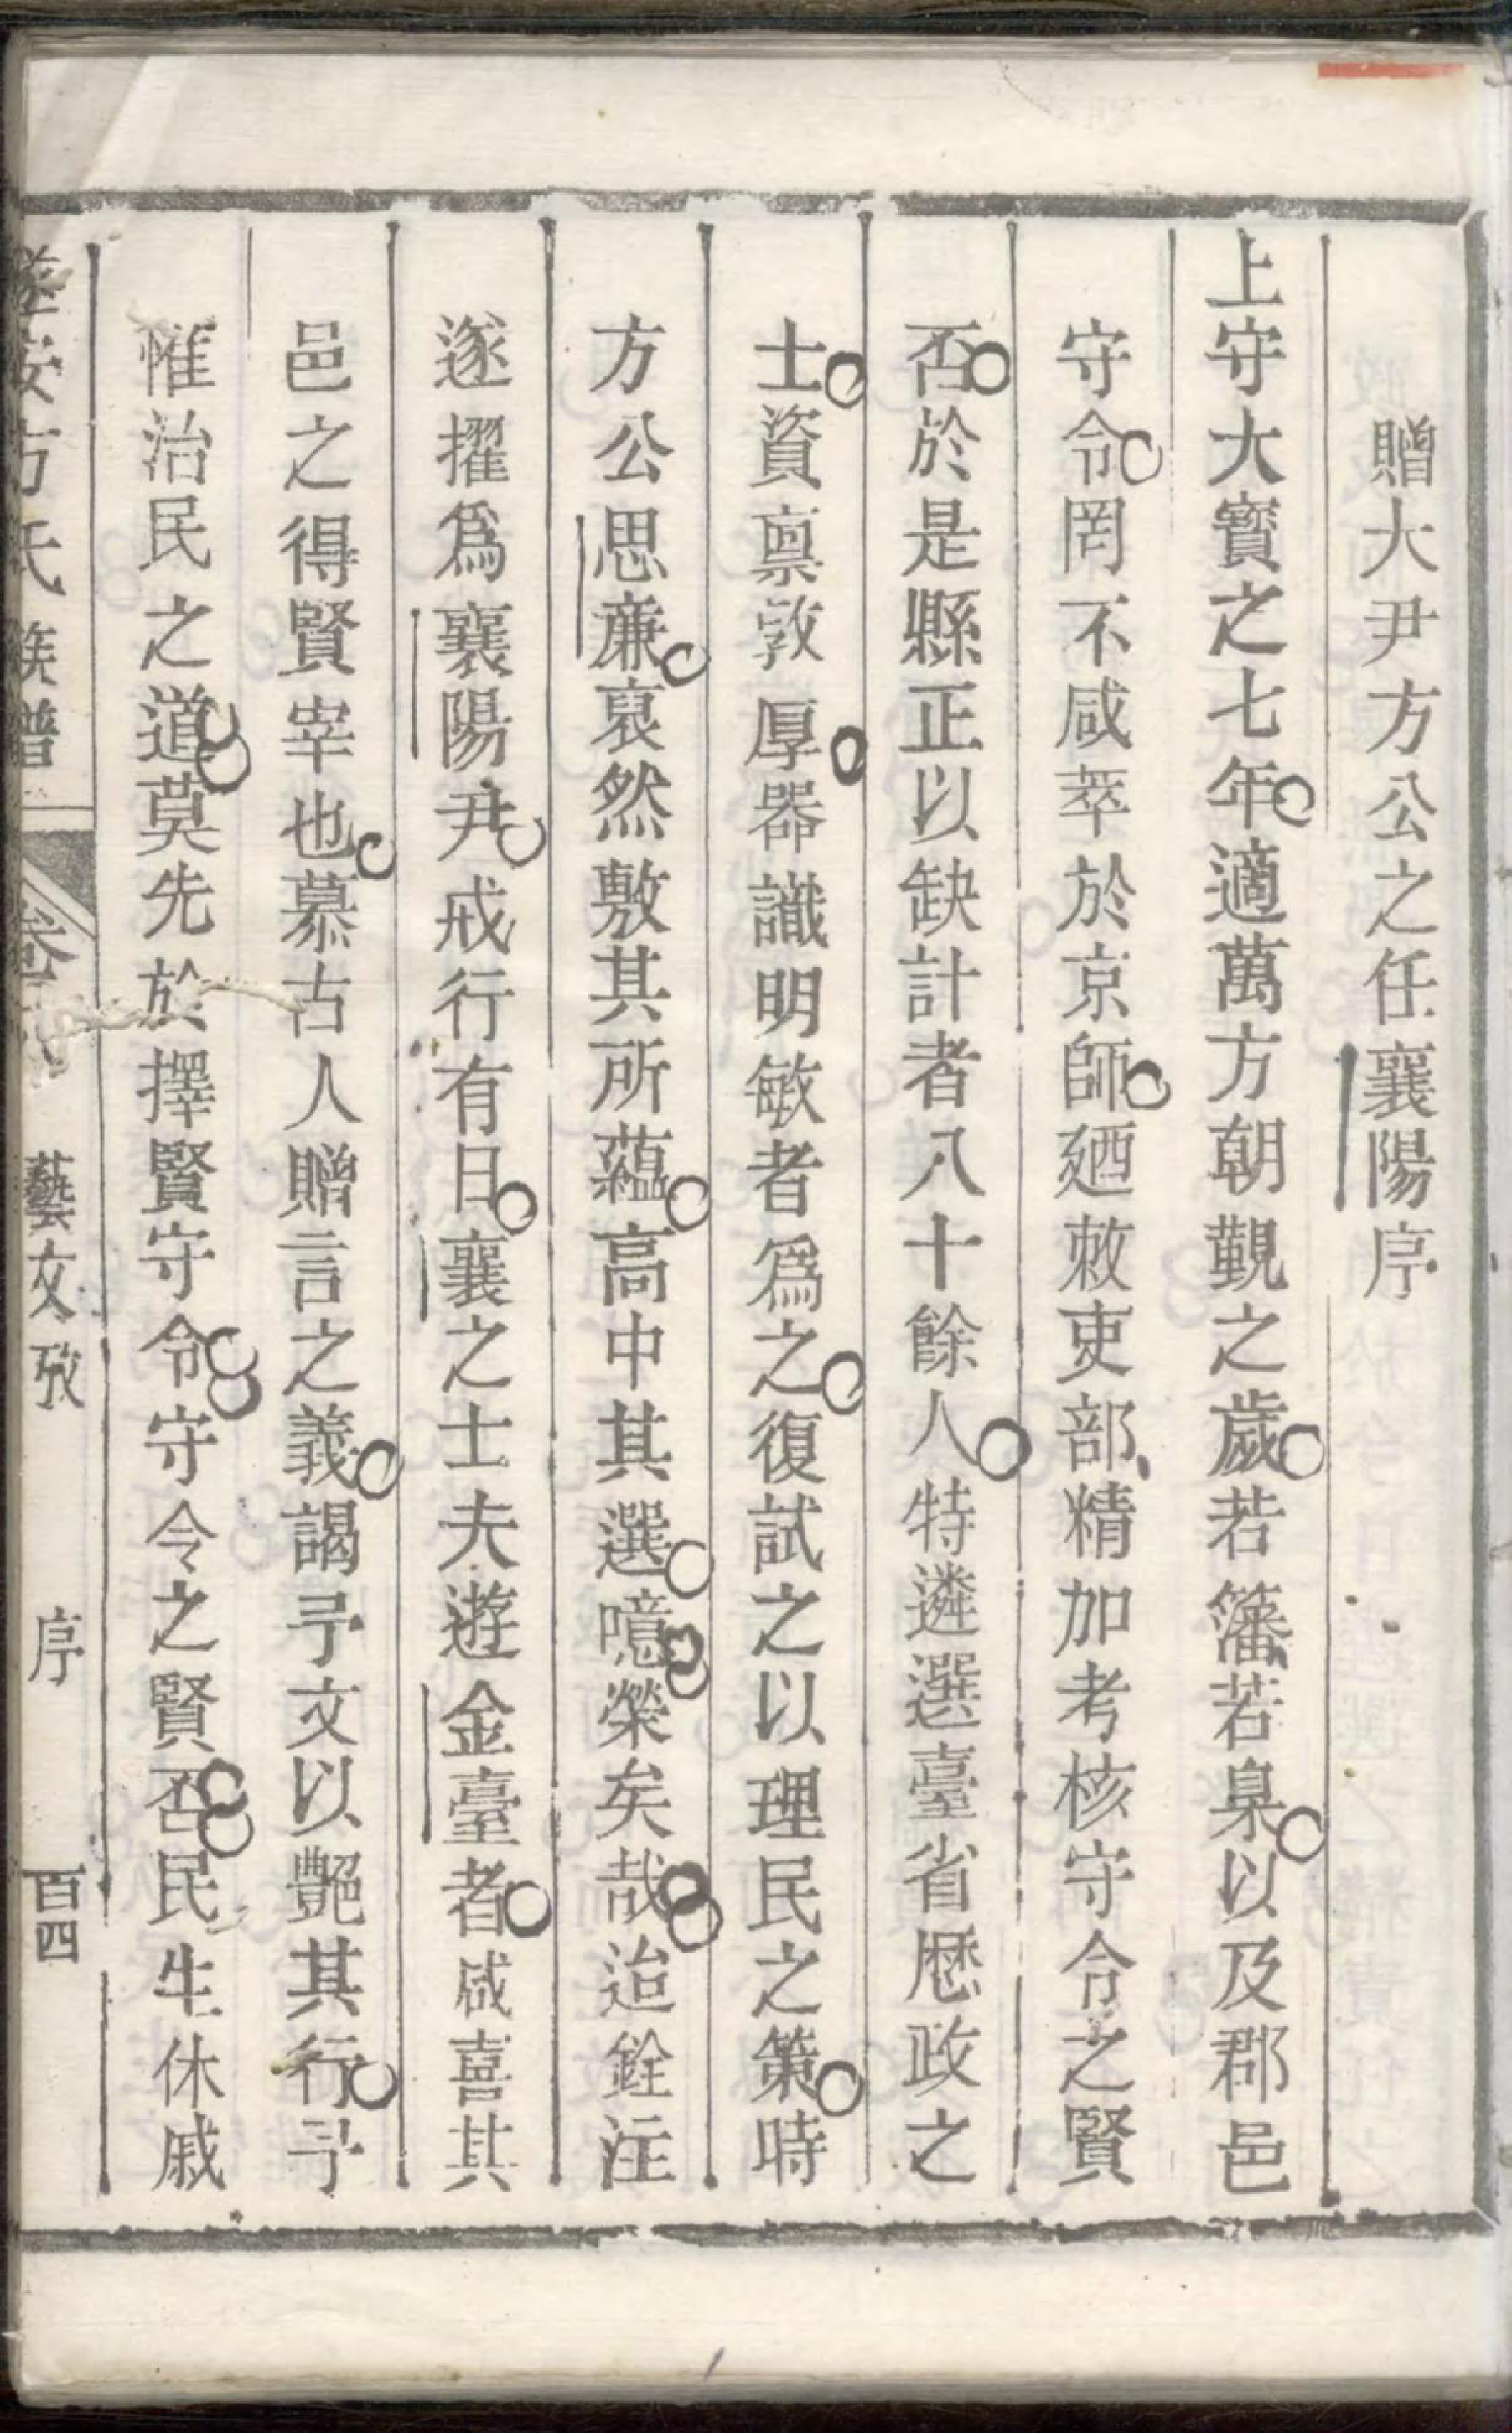 贈大尹方公之任襄陽序
上守大寳之七年適萬方朝覲之歲若籓若臬以及郡邑
守令罔不咸萃於京師廼敕吏部精加考核守令之賢
否於是縣正以缺計者八十餘人特遴選臺省歷政之
士資禀敦厚器識明敏者爲之復試之以理民之策時
方公思亷裒然敷其所蘊高中其選噫榮矣哉迨銓注
遂擢爲襄陽尹戒行有日襄之士夫遊金臺者咸喜其
邑之得賢宰也慕古人贈言之義謁予文以艷其行予
惟治民之道莫先於擇賢守令守令之賢否民生休戚
遂安方氏族譜 卷 藝文攷 序 百四